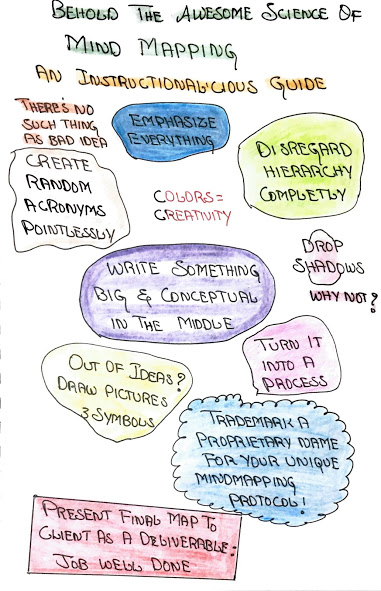 BEHOLD THE AWESOME SCIENCE OF
MIND MAPPING
AN INSTRUCTIONALICIOUS GUIDE
THERE'S NO
SUCH THING
AS BAD IDEA
EMPHASIZE
EVERYTHING
DISREGARD
HIERARCHY
COMPLETLY
CREATE
RANDOM
ACRONYMS
POINTLESSLY
COLORS=
CREATIVITY
DROP
SHADOWS
WHY NOT?
WRITE SOMETHING
BIG & CONCEPTUAL
IN THE MIDDLE
TURN IT
INTO A
PROCESS
OUT OF IDEAS?
DRAW PICTURES
& SYMBOLS
TRADEMARK A
PROPRIETARY NAME
FOR YOUR UNIQUE
MINDMAPPING
PROTOCOL!
PRESENT FINAL MAP TO
CLIENT AS A DELIVERABLE:
JOB WELL DONE